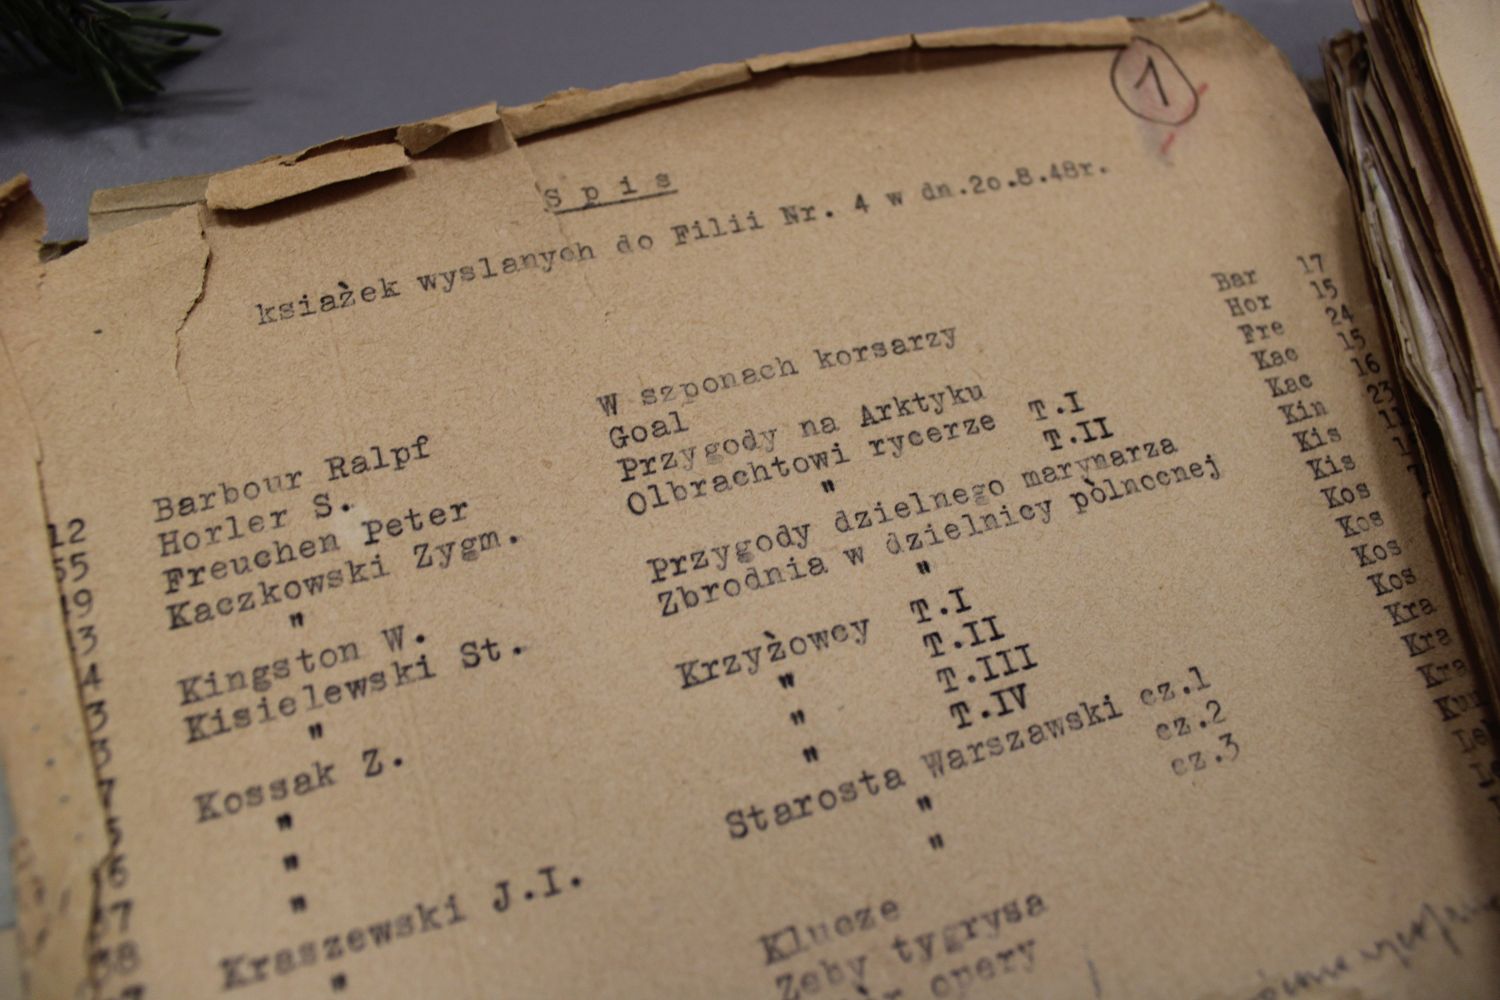 1
S p i s
ksiażek wyslanych do Filii Nr. 4 w dn.2o.8.48r.
12 Barbour Ralpf W szponach korsarzy Bar 17
55 Horler S. Goal Hor 15
19 Freuchen Peter Przygody na Arktyku Fre 24
3 Kaczkowski Zygm. Olbrachtowi rycerze T.I Kac 15
4 " " T.II Kac 16
3 Kingston W. Przygody dzielnego marynarza Kin 23
Kisielewski St. Zbrodnia w dzielnicy pòlnocnej Kis
" " Kis
Kossak Z. Krzyżowcy T.I Kos
" " T.II Kos
" " T.III Kos
" " T.IV Kos
Kraszewski J.I. Starosta Warszawski cz.1 Kra
" " cz.2 Kra
" cz.3 Kra
Klucze
Zeby tygrysa
opery